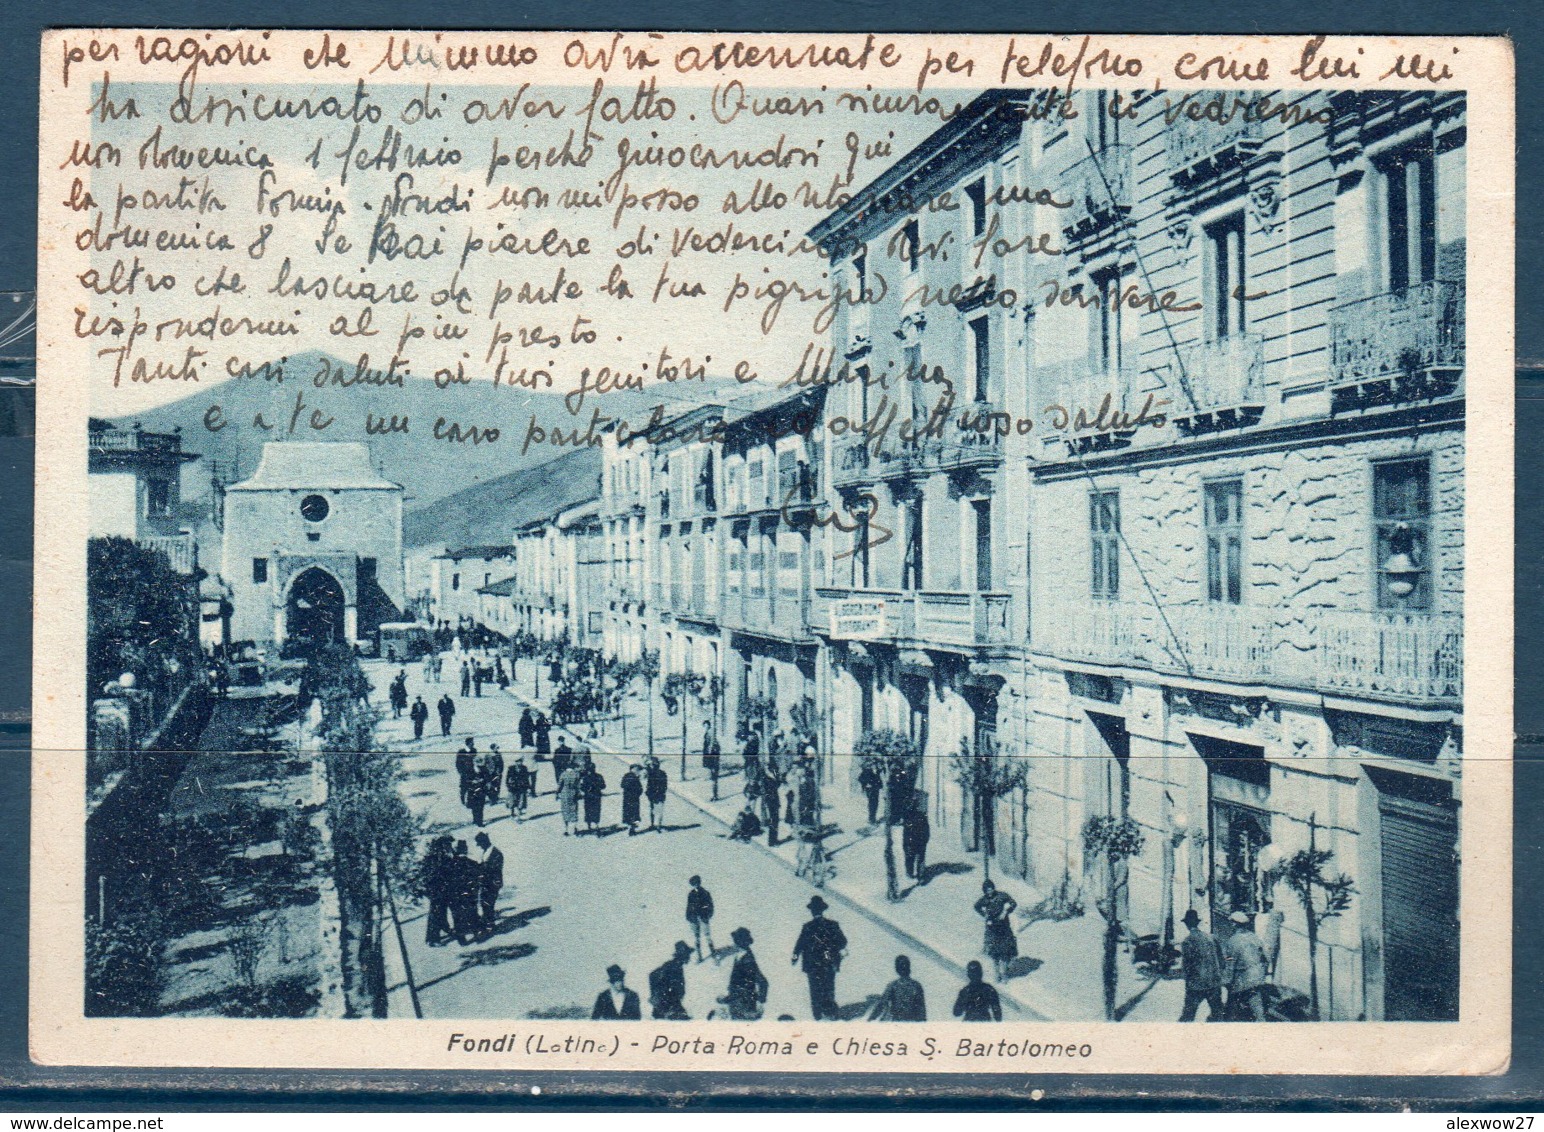 per ragioni che Mimmo avrà accennate per telefono, come lui mi
ha assicurato di aver fatto. Quasi sicuramente ci vedremo
non domenica 1 febbraio perchè giuocandosi qui
la partita Formia-Fondi non mi posso allontanare ma
domenica 8 Se hai piacere di vederci non devi fare
altro che lasciare da parte la tua pigrizia nello scrivere e
rispondermi al più presto.
Tanti cari saluti ai tuoi genitori e Marina
e a te un caro particolare ed affettuoso saluto
Fondi (Latina) - Porta Roma e Chiesa S. Bartolomeo
alexwow27